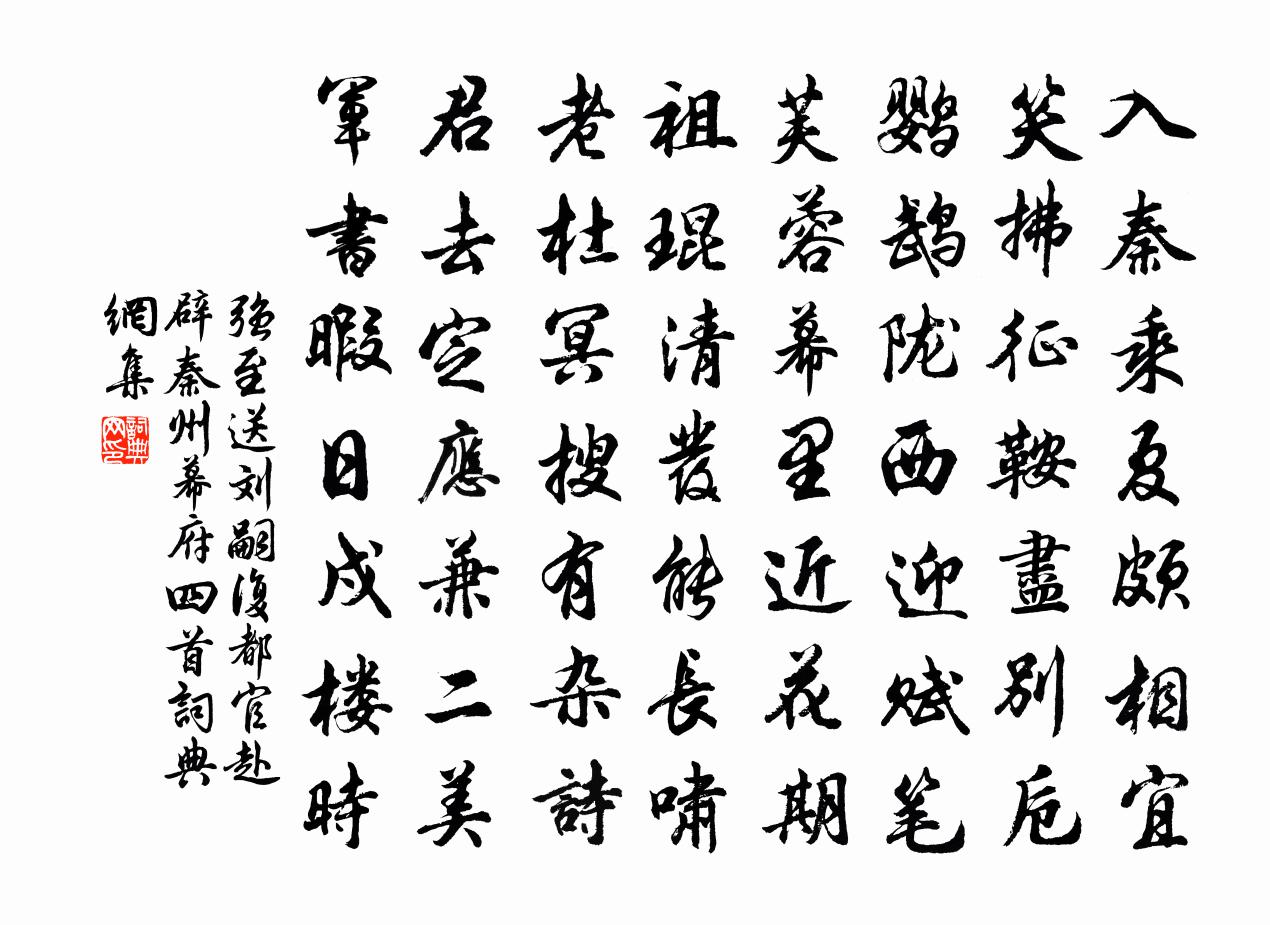 入秦乘夏頗相宜
笑拂征鞍盡别卮
鹦鹉陇西迎赋笔
芙蓉幕里近花期
祖琨清發能長嘯
老杜冥搜有杂詩
君去定應兼二美
軍書暇日戍楼時
強至送刘嗣復都官赴
辟秦州幕府四首詞典
網集
詞典
网印